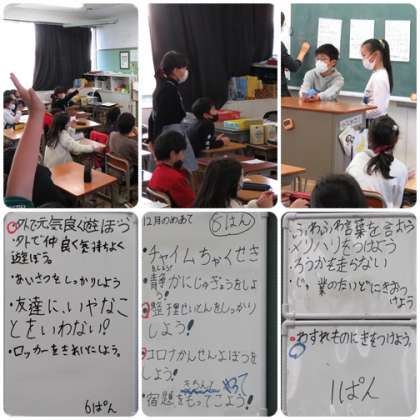 外で元気良く遊ぼう
・外で仲良く気持ちよく
遊ぼう。
・あいさつをしっかりしよう
・友達に、いやなこ
とをいわない!
・ロッカーをきれいにしよう。
6ぱん
12月のめあて
6ぱん
・チャイムちゃくせき
しよう!
・静かにじゅぎょうをしよう!
整理せいとんをしっかり
しよう!
コロナかんせんよぼうを
しよう!
きちんと
やって
宿題をもってこよう!
ふわふわ言葉を言おう
メリハリをつけよう
ろうかを走らない
わすれものにきをつけよう。
11ぱん